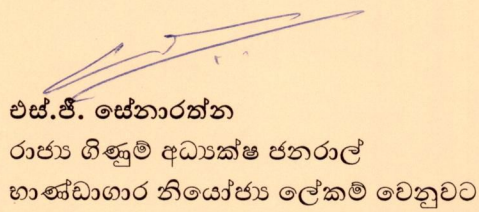 එස්.ජී. සේනාරත්න
රාජ්‍ය ගිණුම් අධ්‍යක්ෂ ජනරාල්
භාණ්ඩාගාර නියෝජ්‍ය ලේකම් වෙනුවට